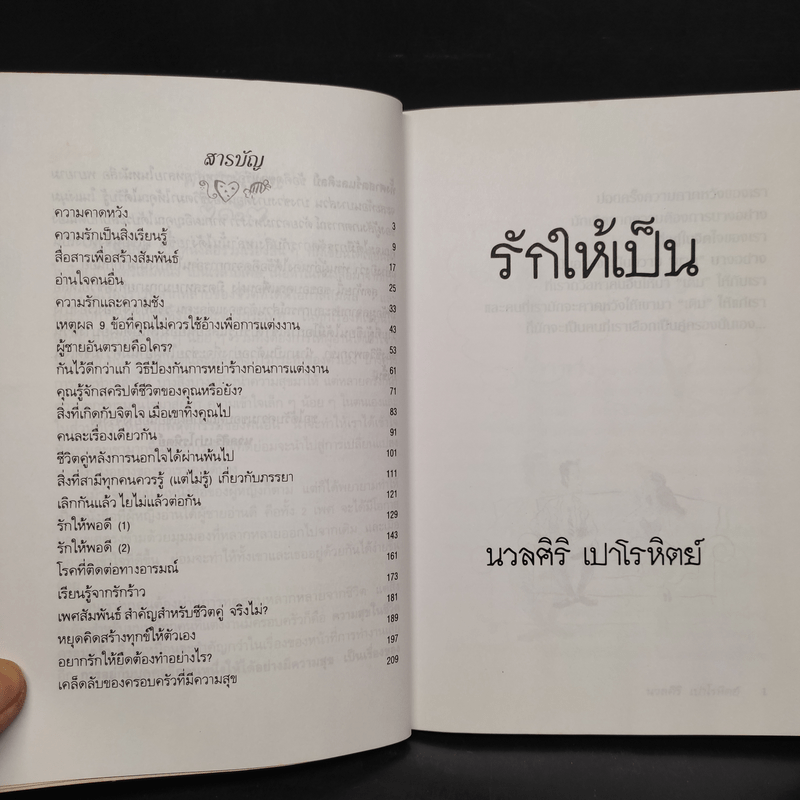 สารบัญ
ความคาดหวัง 3
ความรักเป็นสิ่งเรียนรู้ 9
สื่อสารเพื่อสร้างสัมพันธ์ 17
อ่านใจคนอื่น 25
ความรักและความชัง 33
เหตุผล 9 ข้อที่คุณไม่ควรใช้อ้างเพื่อการแต่งงาน 43
ผู้ชายอันตรายคือใคร? 53
กันไว้ดีกว่าแก้ วิธีป้องกันการหย่าร้างก่อนการแต่งงาน 61
คุณรู้จักสคริปต์ชีวิตของคุณหรือยัง? 71
สิ่งที่เกิดกับจิตใจ เมื่อเขาทิ้งคุณไป 83
คนละเรื่องเดียวกัน 91
ชีวิตคู่หลังการนอกใจได้ผ่านพ้นไป 101
สิ่งที่สามีทุกคนควรรู้ (แต่ไม่รู้) เกี่ยวกับภรรยา 111
เลิกกันแล้ว ไยไม่แล้วต่อกัน 121
รักให้พอดี (1) 129
รักให้พอดี (2) 143
โรคที่ติดต่อทางอารมณ์ 161
เรียนรู้จากรักร้าว 173
เพศสัมพันธ์ สำคัญสำหรับชีวิตคู่ จริงไม่? 181
หยุดคิดสร้างทุกข์ให้ตัวเอง 189
อยากรักให้ยืดต้องทำอย่างไร? 197
เคล็ดลับของครอบครัวที่มีความสุข 209
รักให้เป็น
นวลศิริ เปาโรหิตย์